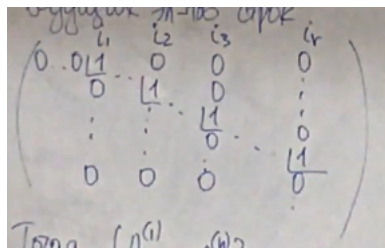 эл-тов строк
i₁ i₂ i₃ iᵣ
0 .. 0 1 0 0 0
0 .. 1 0 :
: : 1 :
: : 0 .. 0
: : : 1
0 0 0 0